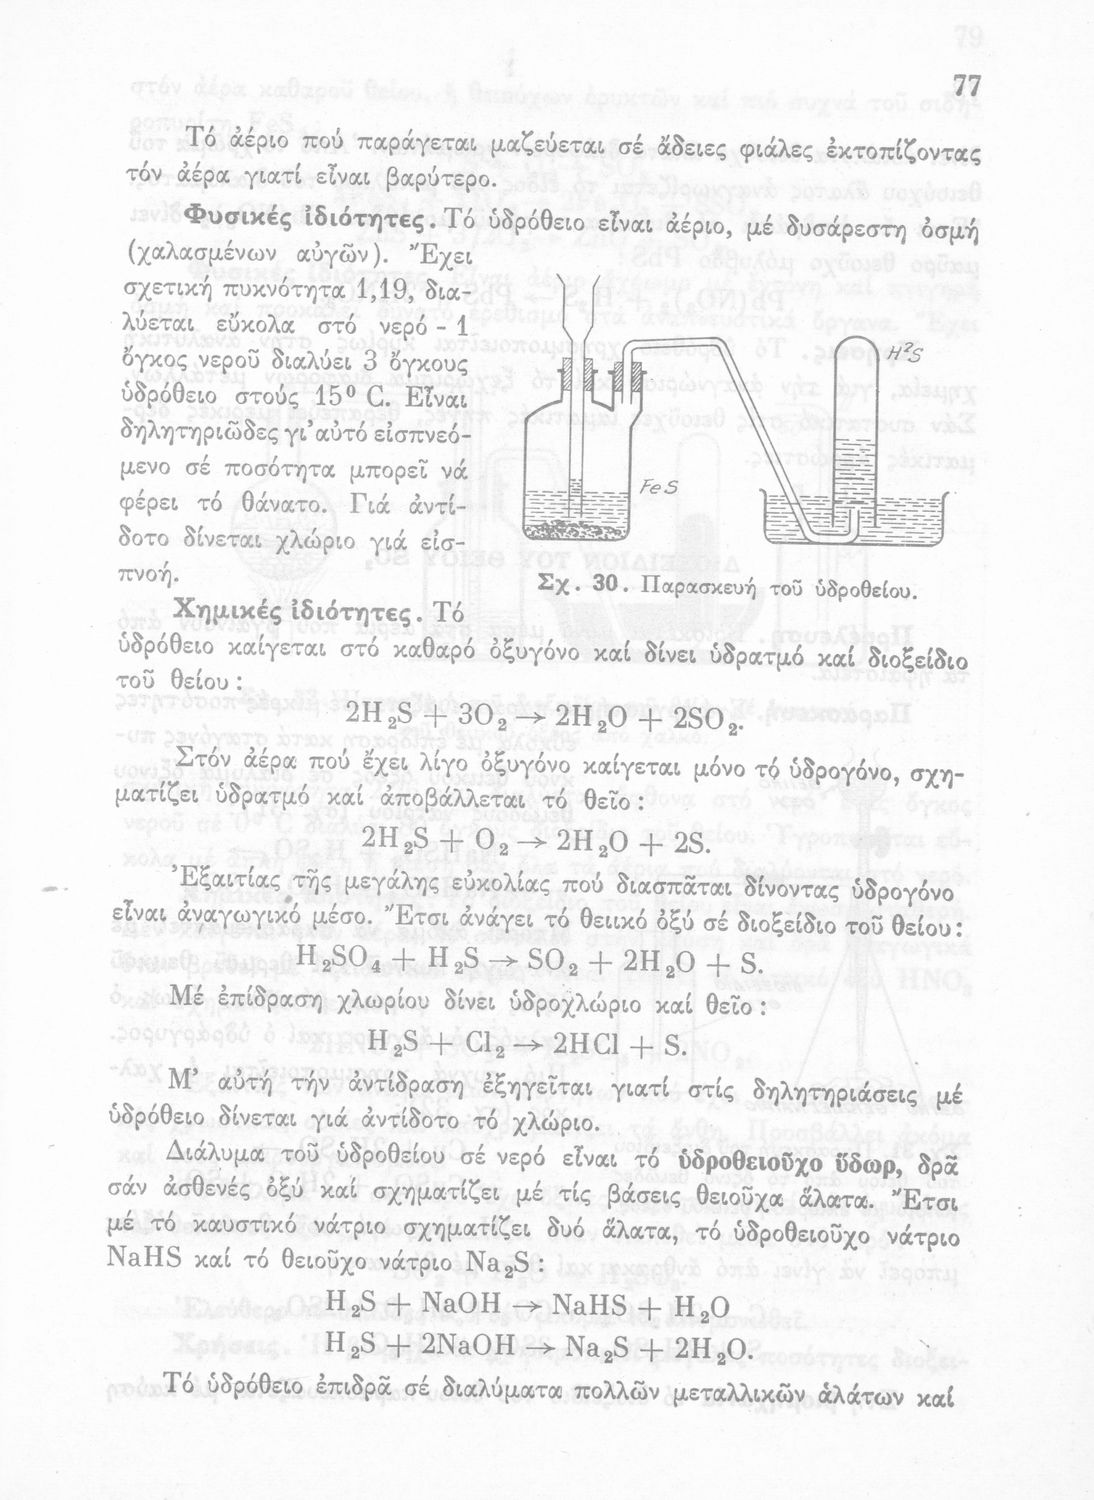 77
Τό ἀέριο πού παράγεται μαζεύεται σέ ἄδειες φιάλες ἐκτοπίζοντας
τόν ἀέρα γιατί εἶναι βαρύτερο.
Φυσικές ἰδιότητες. Τό ὑδρόθειο εἶναι ἀέριο, μέ δυσάρεστη ὀσμή
(χαλασμένων αὐγῶν). Ἔχει
σχετική πυκνότητα 1,19, δια-
λύεται εὔκολα στό νερό - 1
ὄγκος νεροῦ διαλύει 3 ὄγκους
ὑδρόθειο στούς 15⁰ C. Εἶναι
δηλητηριῶδες γι’ αὐτό εἰσπνεό-
μενο σέ ποσότητα μπορεῖ νά
φέρει τό θάνατο. Γιά ἀντί-
δοτο δίνεται χλώριο γιά εἰσ-
πνοή.
H²S
FeS
Σχ. 30. Παρασκευή τοῦ ὑδροθείου.
Χημικές ἰδιότητες. Τό
ὑδρόθειο καίγεται στό καθαρό ὀξυγόνο καί δίνει ὑδρατμό καί διοξείδιο
τοῦ θείου :
2H₂S + 3O₂ → 2H₂O + 2SO₂.
Στόν ἀέρα πού ἔχει λίγο ὀξυγόνο καίγεται μόνο τό ὑδρογόνο, σχη-
ματίζει ὑδρατμό καί ἀποβάλλεται τό θεῖο :
2H₂S + O₂ → 2H₂O + 2S.
Ἐξαιτίας τῆς μεγάλης εὐκολίας πού διασπᾶται δίνοντας ὑδρογόνο
εἶναι ἀναγωγικό μέσο. Ἔτσι ἀνάγει τό θειικό ὀξύ σέ διοξείδιο τοῦ θείου :
H₂SO₄ + H₂S → SO₂ + 2H₂O + S.
Μέ ἐπίδραση χλωρίου δίνει ὑδροχλώριο καί θεῖο :
H₂S + Cl₂ → 2HCl + S.
Μ’ αὐτή τήν ἀντίδραση ἐξηγεῖται γιατί στίς δηλητηριάσεις μέ
ὑδρόθειο δίνεται γιά ἀντίδοτο τό χλώριο.
Διάλυμα τοῦ ὑδροθείου σέ νερό εἶναι τό ὑδροθειοῦχο ὕδωρ, δρᾶ
σάν ἀσθενές ὀξύ καί σχηματίζει μέ τίς βάσεις θειοῦχα ἅλατα. Ἔτσι
μέ τό καυστικό νάτριο σχηματίζει δυό ἅλατα, τό ὑδροθειοῦχο νάτριο
NaHS καί τό θειοῦχο νάτριο Na₂S :
H₂S + NaOH → NaHS + H₂O
H₂S + 2NaOH → Na₂S + 2H₂O.
Τό ὑδρόθειο ἐπιδρᾶ σέ διαλύματα πολλῶν μεταλλικῶν ἁλάτων καί